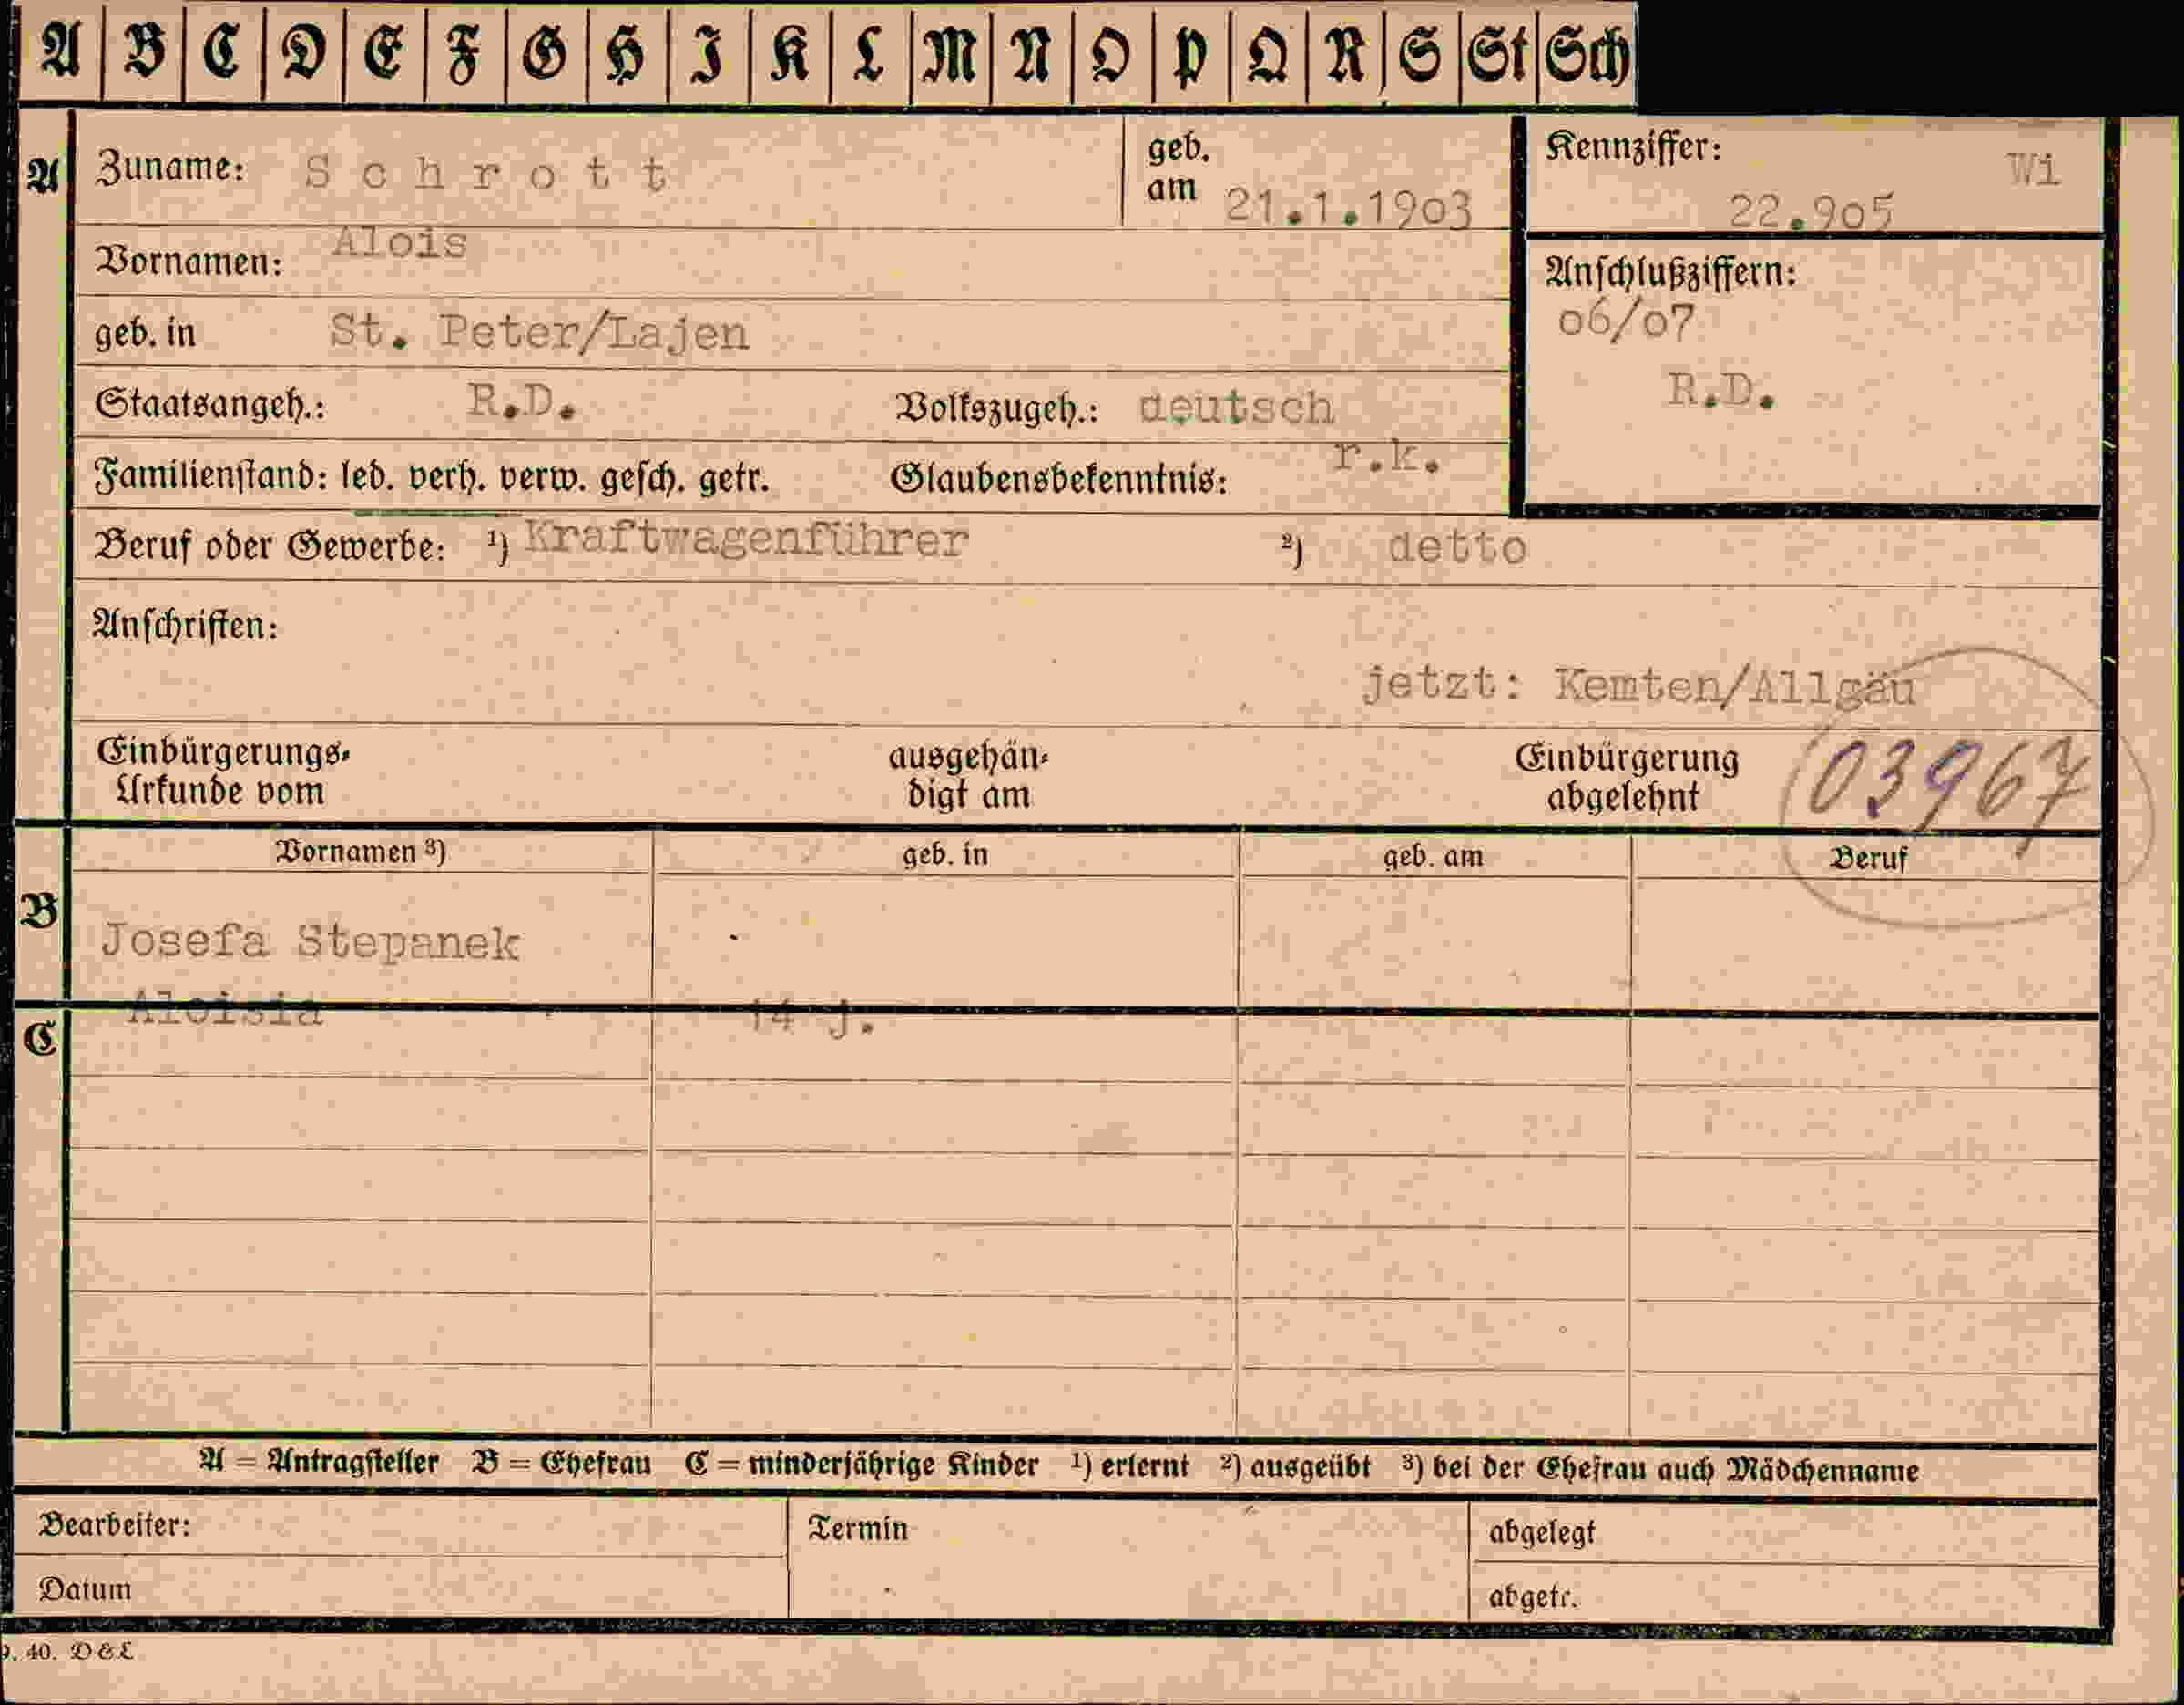 A B C D E F G H I K L M N O P Q R S St Sch
A Zuname: Schrott geb. am 21.1.1903 Kennziffer: Wi
22.905
Vornamen: Alois
Anschlußziffern:
06/07
geb. in St. Peter/Lajen
R.D.
Staatsangeh.: R.D. Volkszugeh.: deutsch
Familienstand: led. verh. verw. gesch. getr. Glaubensbekenntnis: r.k.
Beruf oder Gewerbe: ¹) Kraftwagenführer ²) detto
Anschriften:
jetzt: Kemten/Allgäu
Einbürgerungs- ausgehän- Einbürgerung 03967
Urkunde vom digt am abgelehnt
Vornamen ³) geb. in geb. am Beruf
B
Josefa Stepanek
Aloisia 14 J.
C
A = Antragsteller B = Ehefrau C = minderjährige Kinder ¹) erlernt ²) ausgeübt ³) bei der Ehefrau auch Mädchenname
Bearbeiter: Termin abgelegt
Datum abgetr.
40. D & L